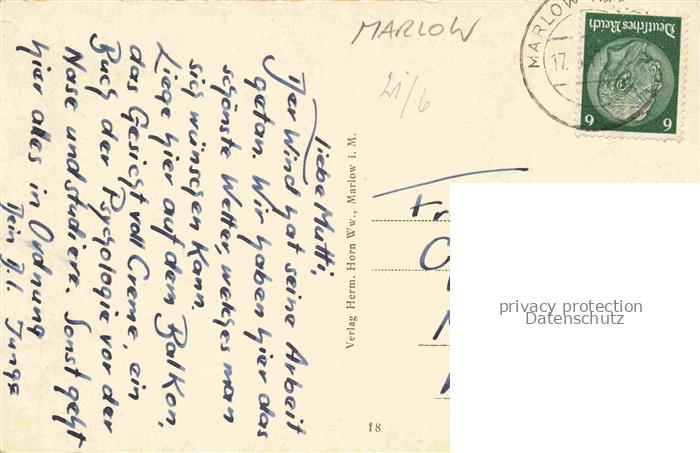 Liebe Mutti,
Der Wind hat seine Arbeit
getan. Wir haben hier das
schönste Wetter, welches man
sich wünschen kann.
Liege hier auf dem Balkon,
das Gesicht voll Creme, ein
Buch der Psychologie vor der
Nase und studiere. Sonst geht
hier alles in Ordnung
Dein Junge
Verlag Herm. Horn Ww., Marlow i. M.
18
MARLOW
21/6
MARLOW
17.
Deutsches Reich
6 6
privacy protection
Datenschutz